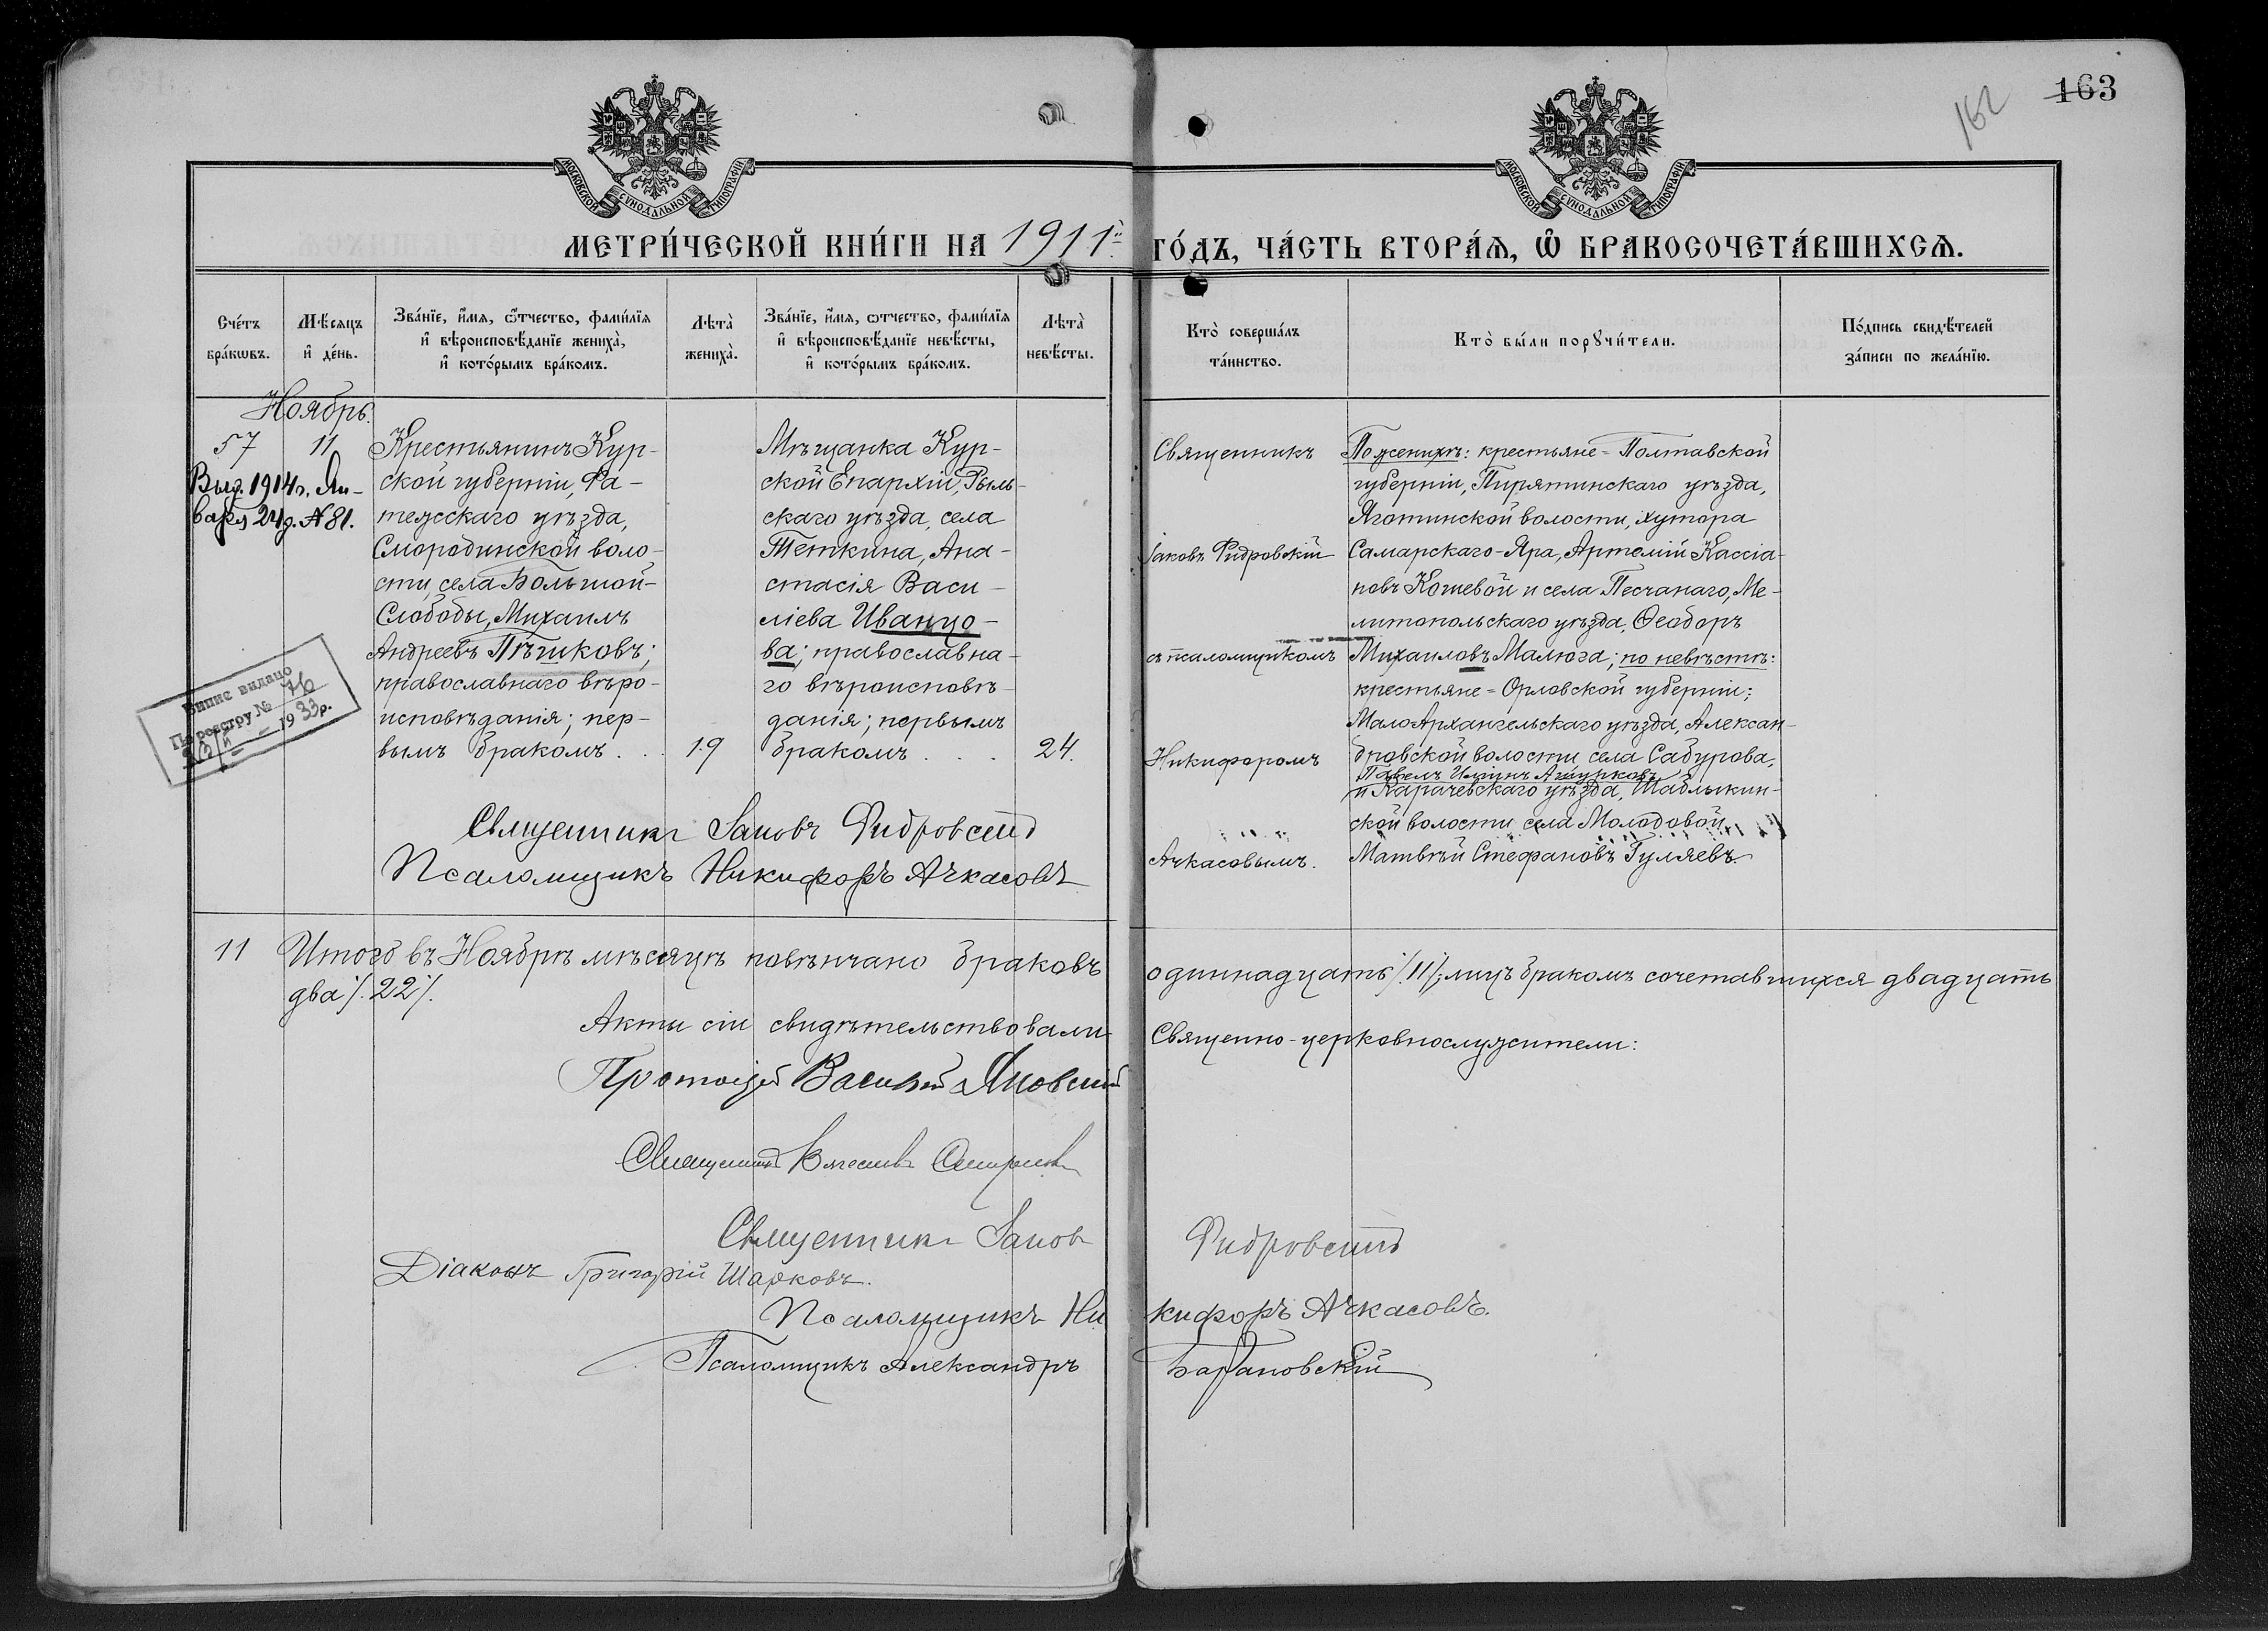 163
162
МОСКОВСКОЙ СѴНОДАЛЬНОЙ ТИПОГРАФІИ
МОСКОВСКОЙ СѴНОДАЛЬНОЙ ТИПОГРАФІИ
МЕТРИ́ЧЕСКОЙ КНИ́ГИ НА 1911й ГО́ДЪ, ЧА́СТЬ ВТОРА́Ѧ, Ѽ БРАКОСОЧЕТА́ВШИХСѦ.
Сче́тъ бра́кѡвъ.
Мѣ́сяцъ и҆ де́нь.
Зва́нїе, и҆́мѧ, ѻ҆́тчество, фами́лїѧ и҆ вѣроисповѣ́данїе жениха̀, и҆ кото́рымъ бра́комъ.
Лѣта̀ жениха̀.
Зва́нїе, и҆́мѧ, ѻ҆́тчество, фами́лїѧ и҆ вѣроисповѣ́данїе невѣ́сты, и҆ кото́рымъ бра́комъ.
Лѣта̀ невѣ́сты.
Кто̀ соверша́лъ та́инство.
Кто̀ бы́ли порꙋчи́тели.
По́дпись свидѣ́телей за́писи по жела́нїю.
Ноябрь.
57
11
Выд. 1914 г. Ян-
варя 24 д. № 81.
Крестьянинъ Кур-
ской губерніи, Фа-
тежскаго уѣзда,
Смородинской воло-
сти, села Большой-
Слободы, Михаилъ
Андреевъ Пѣшковъ;
православнаго вѣро-
исповѣданія; пер-
вымъ бракомъ . .
19
Мѣщанка Кур-
ской Епархіи, Рыль-
скаго уѣзда, села
Теткина, Ана-
стасія Васи-
ліева Иванцо-
ва; православна-
го вѣроисповѣ-
данія; первымъ
бракомъ . . .
24.
Священникъ
Іаковъ Фидровскій
съ псаломщикомъ
Никифоромъ
Ачкасовымъ.
По женихѣ: крестьяне = Полтавской
губерніи, Пирятинскаго уѣзда,
Яготинской волости, хутора
Самарскаго-Яра, Артемій Кассіа-
новъ Кошевой и села Песчанаго, Ме-
литопольскаго уѣзда, Ѳеодоръ
Михаиловъ Малюга; по невѣстѣ:
крестьяне = Орловской губерніи;
МалоАрхангельскаго уѣзда, Алексан-
дровской волости села Сабурова,
Павелъ Ильинъ
и Карачевскаго уѣзда, Шаблыкин-
ской волости села Молодовой
Матвѣй Стефановъ Гуляевъ.
Випис видано
По реєстру № 76
1933 р.
Священникъ Іаковъ Фидровскій
Псаломщикъ Никифоръ Ачкасовъ
11
Итого въ Ноябрѣ мѣсяцѣ повѣнчано браковъ одиннадцать /.11/.; лицъ бракомъ сочетавшихся двадцать
два /.22/.
Акты сіи свидѣтельствовали Священно-церковнослужители:
Протоіерей Василій Яновскій
Священникъ
Священникъ Іаковъ Фидровскій
Діаконъ Григорій Шарковъ.
Псаломщикъ Никифоръ Ачкасовъ.
Псаломщикъ Александръ Барановскій